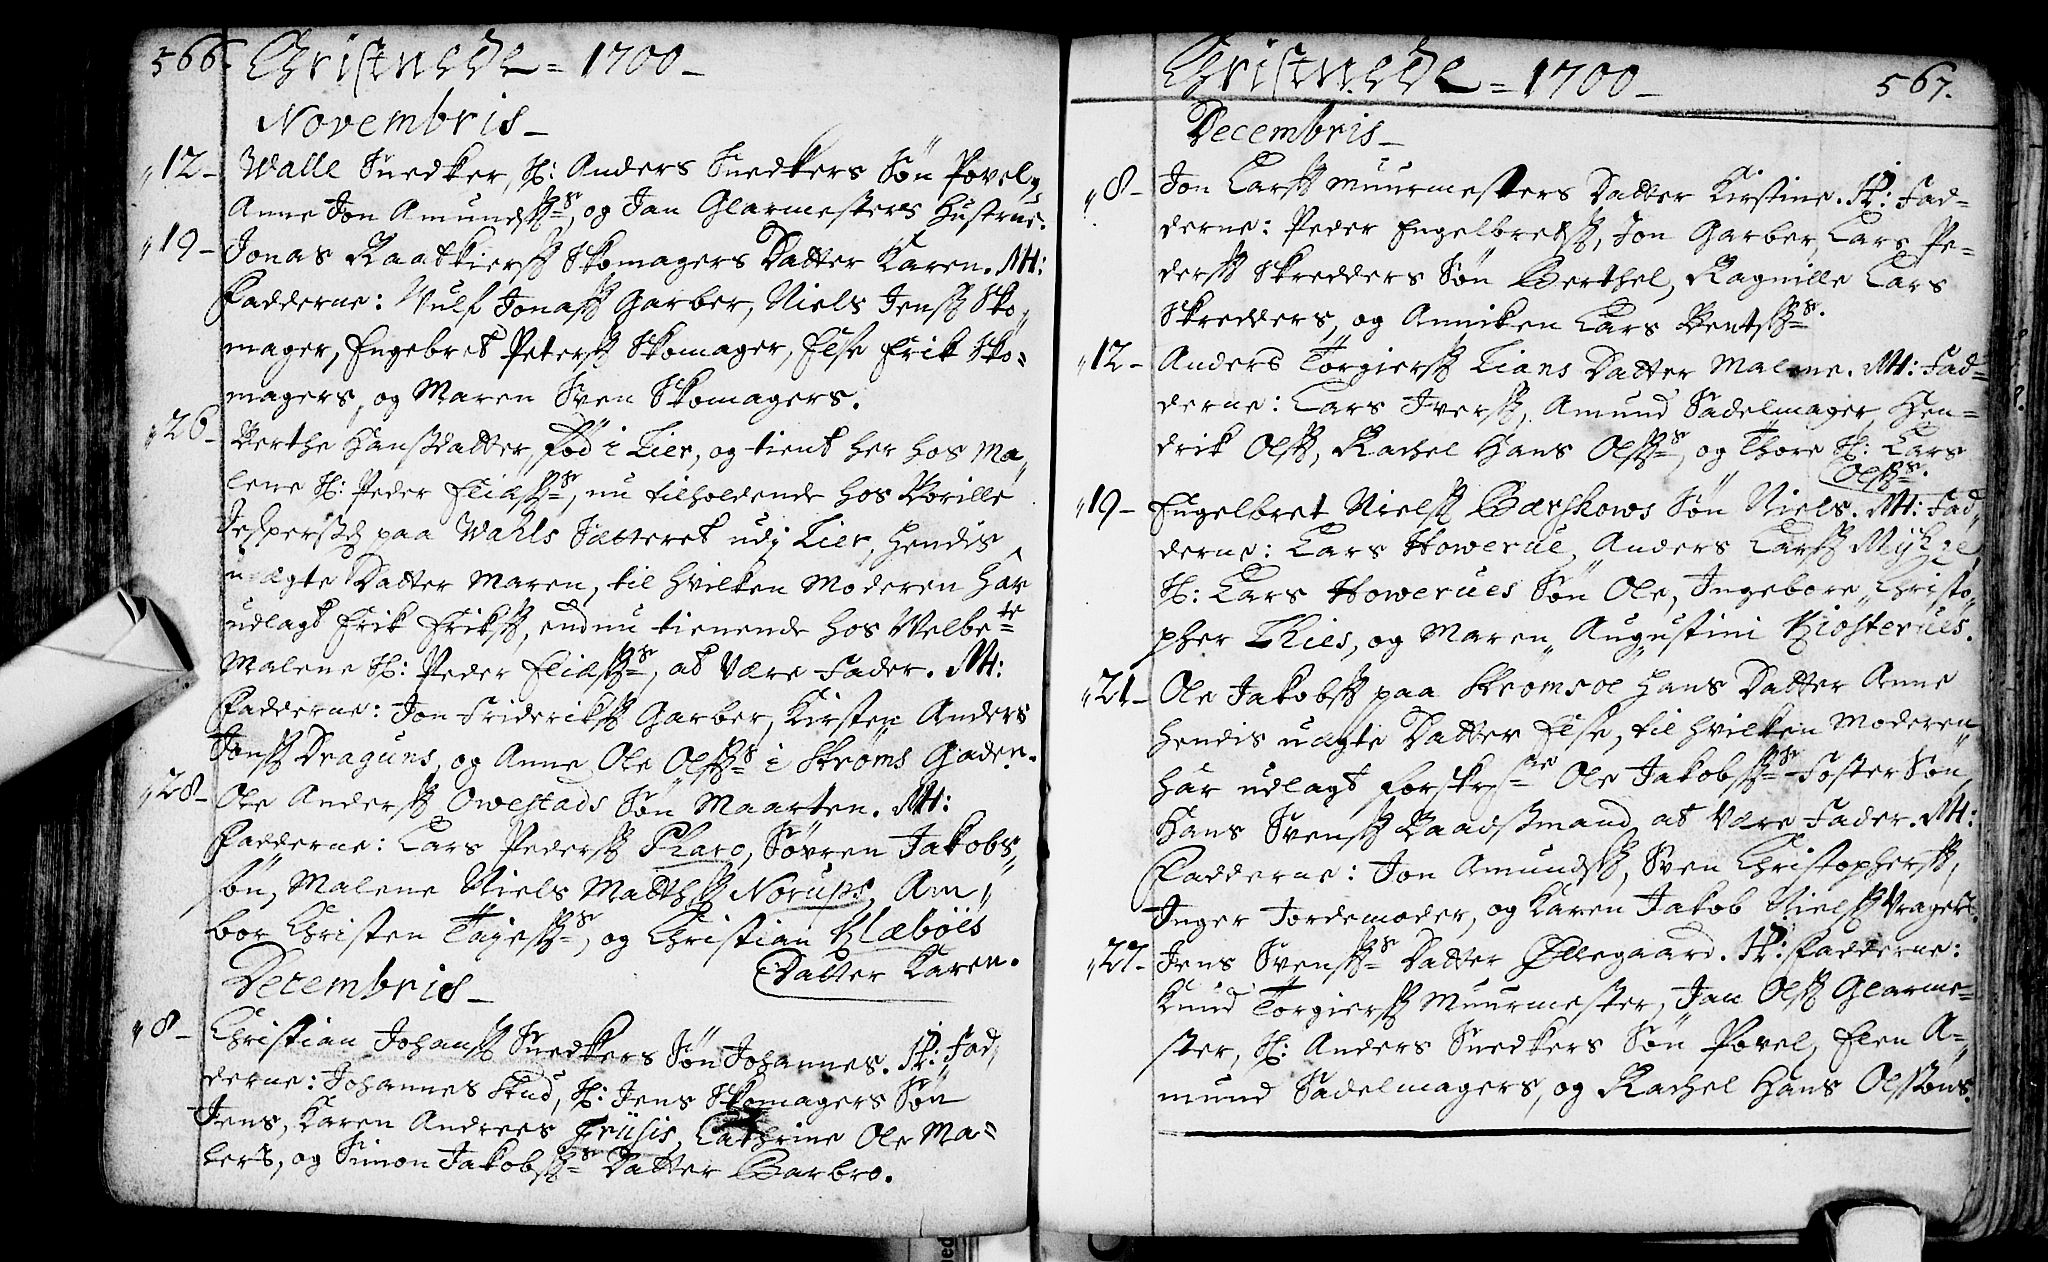 566. Christnede = 1700_
Novembris_
12_ Walle Snedker, Sl: Anders Snedkers Søn Povel,
Anne Jon Amundsøns, og Jan Glarmesters Hustrue.
19_ Jonas Raatkiersøn Skomagers Datter Karen. M:
Fadderne: Wulf Jonasøn Garber, Niels Jensøn Sko„
mager, Engebret Petersøn Skomager, Else Erik Sko=
magers, og Maren Sven Skomagers.
26_ Berthe Hansdatter, Fød i Lier, og tient her hos Ma„
lene Sl: Peder Eliasøns, nu tilholdende hos Borille
Jespersd paa Wahls Sætteret udj Lier, hendis
uægte Datter Maren, til hvilken Moderen har
udlagt Erik Eriksøn, endnu tienende hos Velbete
Malene Sl: Peder Eliasøns, at være Fader. M:
Fadderne: Jon Frideriksøn Garber, Kirsten Anders
Jonsøn Draguns, og Anne Ole Olsøns i Strøms Gaden.
28_ Ole Andersøn Owestads Søn Maarten. M:
Fadderne: Lars Pedersøn Pharo, Søvren Jakobs„
søn, Malene Niels Matthsøn Norups, Am„
bor Christen Tagesøns, og Christian Klæbøes
Datter Karen.
Decembris_
8_ Christian Johansøn Snedkers Søn Johannes. K: Fad„
derne: Johannes Skud, Sl: Jens Skomagers Søn
Jens, Karen Andreas Friisis, Cathrine Ole Ma=
lers, og Simon Jakobsøns Datter Barbro.
Christnede = 1700_ 567.
Decembris_
8_ Jon Larsøn Muurmesters Datter Kirstine. K: Fad=
derne: Peder Engelbretsøn, Jon Garber, Lars Pe=
dersøn Skredders Søn Berthel, Ragnille Lars
Skredders, og Anniken Lars Bentsøns.
12_ Anders Torgiersøn Lians Datter Malene. M: Fad=
derne: Lars Iversøn, Amund Sadelmager, Hen=
drik Olsøn, Rachel Hans Olsøns, og Thore Sl: Lars
Olsøns.
19_ Engelbret Nielsøn Bærskows Søn Niels. M: Fad„
derne: Lars Howerue, Anders Larsøn
Sl: Lars Howerues Søn Ole, Ingebore Christo„
pher Thies, og Maren Augustini Klosterues.
21_ Ole Jakobsøn paa Strømsoe Hans Datter Anne
hendis uægte Datter Else, til hvilken Moderen
har udlagt forskrne Ole Jakobsøns Søster Søn,
Hans Svensøn Baadsmand at være Fader. M:
Fadderne: Jon Amundsøn, Sven Christophersøn,
Inger Jordemoder, og Karen Jakob Nielsøn Vragers.
27_ Jens Svensøns Datter Øllegaard. K: Fadderne:
Knud Torgiersøn Muurmester, Jan Olsøn Glarme=
ster, Sl: Anders Snedkers Søn Povel, Elen A=
mund Sadelmagers, og Rachel Hans Olssøns.